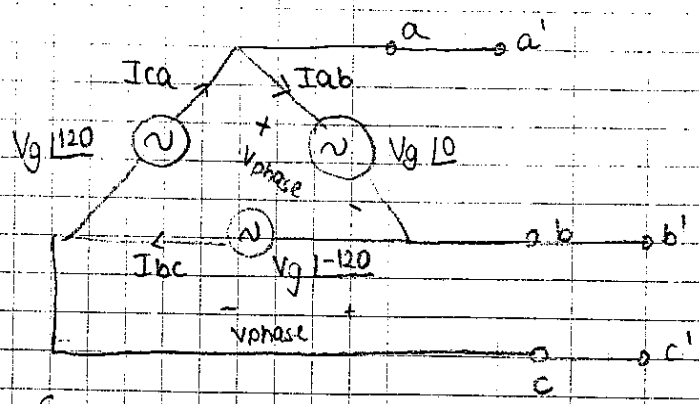 a a'
Ica Iab
Vg ∠120 ~ + ~ Vg ∠0
Vphase
-
~ b b'
Ibc Vg ∠-120
- +
Vphase
c'
c